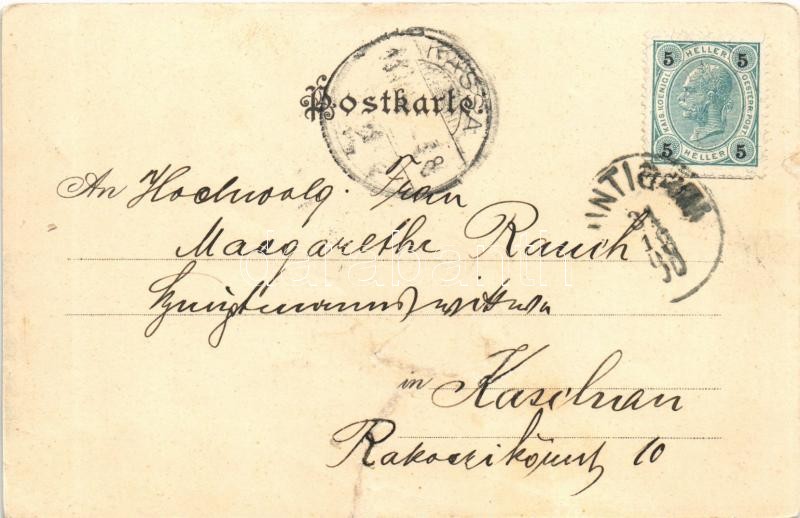 Postkarte
KASSA
5 HELLER 5
KAIS. KOENIGL. OESTERR. POST
5 HELLER 5
An Hochwolg. Frau
Margarethe Rauch
Hauptmannswittwe
in Kaschau
Rakoczikörut 10
darabanth